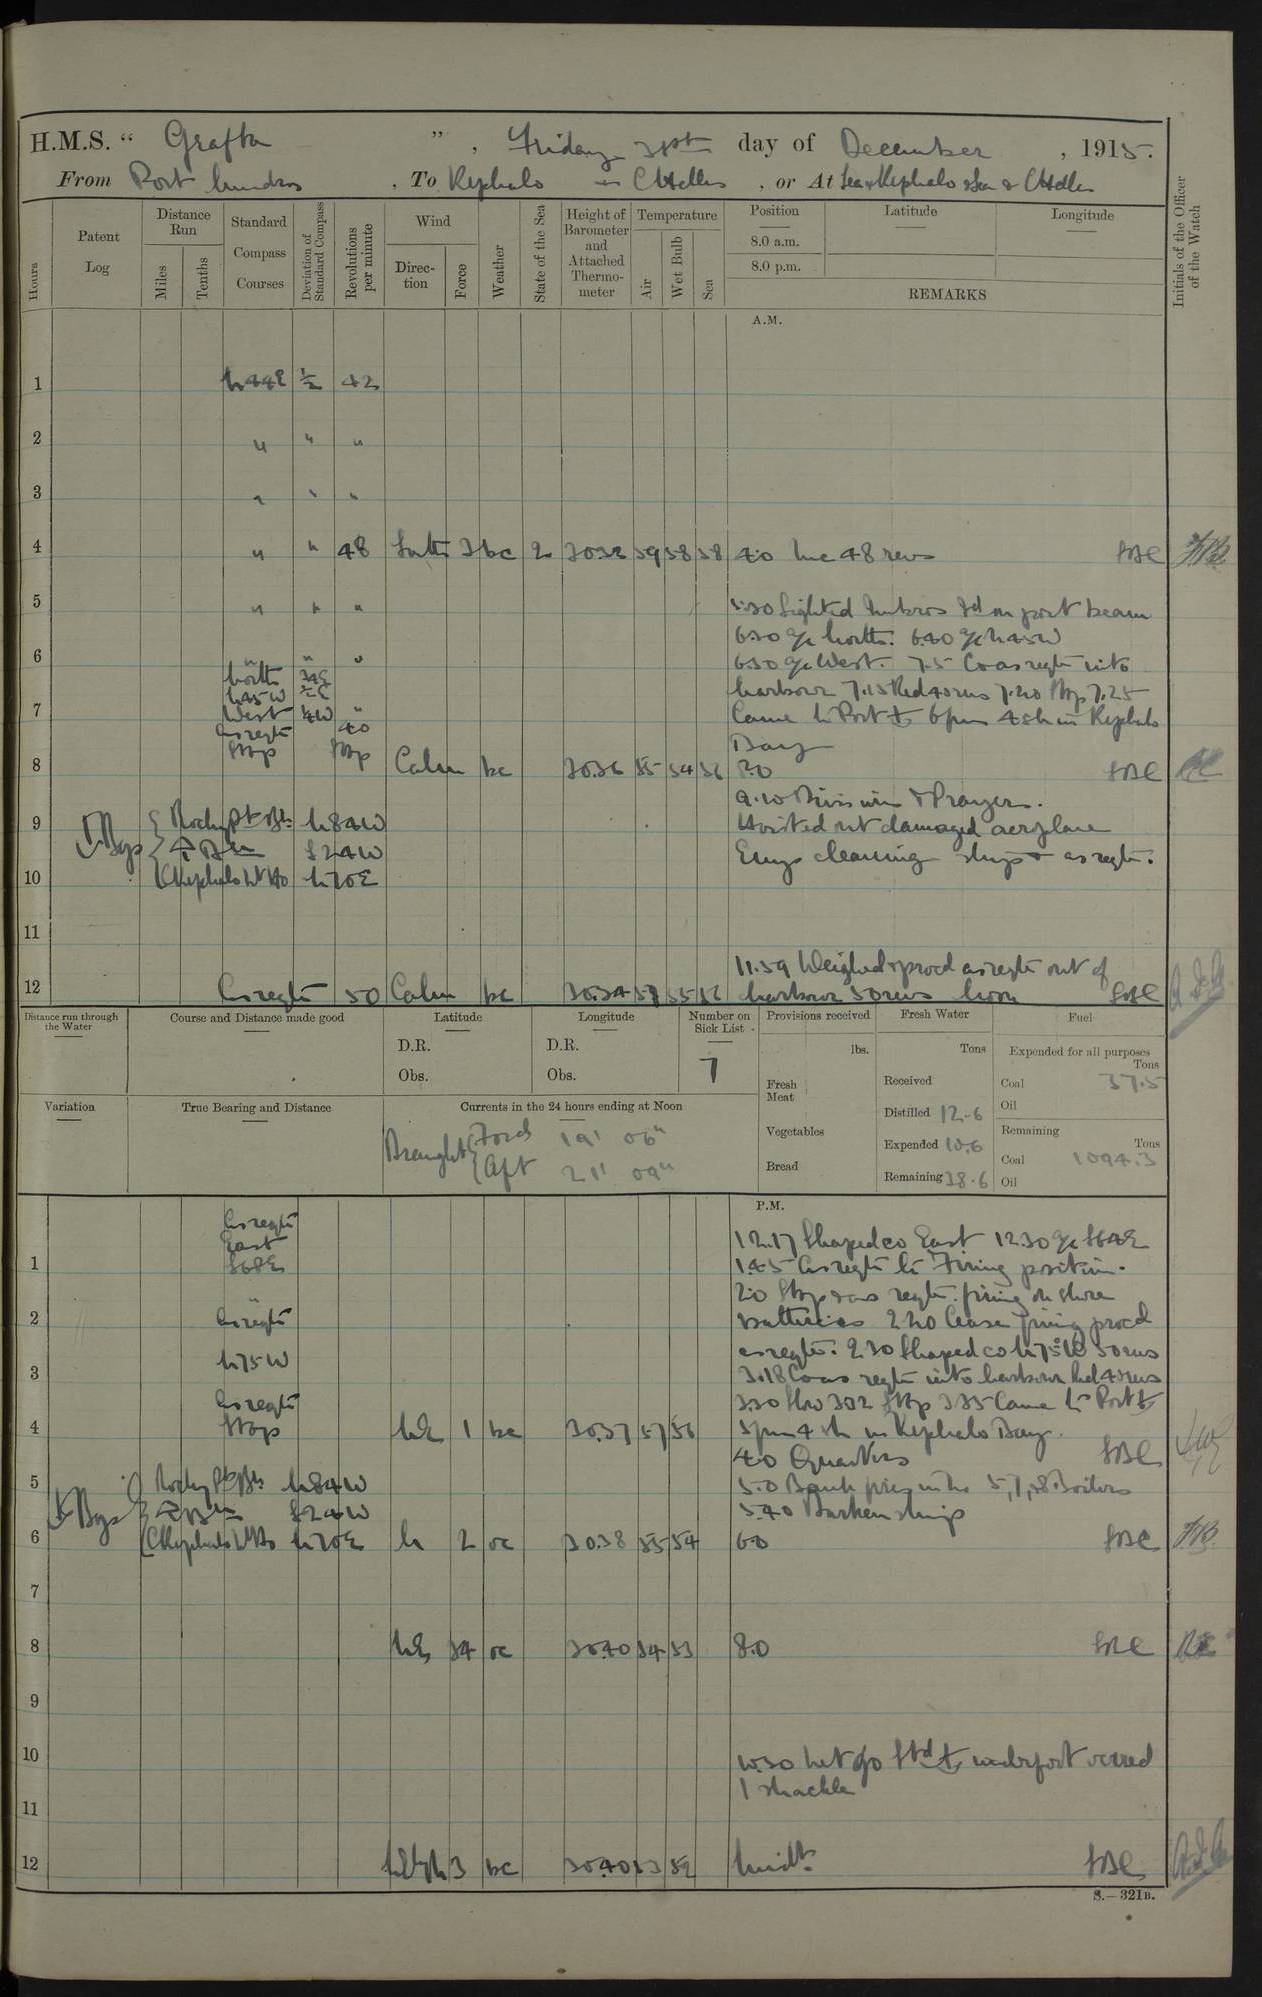 H.M.S. " Grafton ", Friday 31st day of December, 1915.
From Port Mudros, To Kephalo & C Helles, or At Sea & Kephalo & Sea & C Helles
Hours
Patent Log
Distance Run
Miles
Tenths
Standard Compass Courses
Deviation of Standard Compass
Revolutions per minute
Wind
Direction
Force
Weather
State of the Sea
Height of Barometer and Attached Thermometer
Temperature
Air
Wet Bulb
Sea
Position
8.0 a.m.
8.0 p.m.
Latitude
Longitude
REMARKS
Initials of the Officer of the Watch
A.M.
1 N44E ½ 42
2 " " "
3 " " "
4 " " 48 South 3 bc 2 30.38 59 58 58 4.0 Inc 48 revs
5 " " " 5.30 Sighted Imbros Id on port beam
6.30 a/c North. 6.40 a/c N45W
6 " " " 6.50 a/c West. 7.5 Co as reqte into
North ¾E
N45W ½E harbour 7.15 Red 40 revs 7.20 Stop 7.25
7 West ¼W " Came to Port ⚓ 6 fms 4 sh in Kephalo
As reqte 40
Stop Stop Bay
8 Calm bc 30.36 55 54 56 8.0
9.10 Divisions & Prayers.
9 Rocky Pt Bn N84W Hoisted out damaged aeroplane
⚓ Bgs S24W Emp cleaning ship & as reqte.
10 C Kephalo Lt Ho N70E
11
11.59 Weighed & procd as reqte out of
12 As reqte 50 Calm bc 30.34 57 55 56 harbour 50 revs Noon
Distance run through the Water
Course and Distance made good
Latitude
D.R.
Obs.
Longitude
D.R.
Obs.
Number on Sick List
7
Provisions received
lbs.
Fresh Meat
Vegetables
Bread
Fresh Water
Tons
Received
Distilled 12.6
Expended 10.6
Remaining 38.6
Fuel
Expended for all purposes
Tons
Coal 37.5
Oil
Remaining
Tons
Coal 1094.3
Oil
Variation
True Bearing and Distance
Currents in the 24 hours ending at Noon
Draught Ford 19' 06"
Aft 21' 09"
P.M.
As reqte
East 12.17 Shaped co East 12.30 a/c S68E
1 S68E 1.45 As reqte to Firing position.
" 2.0 Stop & as reqte. firing on shore
2 As reqte batteries 2.20 Cease firing procd
N75W as reqte. 2.30 Shaped co N75W 50 revs
3 3.18 Co as reqte into harbour Red 40 revs
As reqte 3.30 Slow 3.32 Stop 3.35 Came to Port ⚓
4 Stop NE 1 bc 30.37 57 56 5 fms 4 sh in Kephalo Bay.
4.0 Quarters
5 Rocky Pt Bn N84W 5.0 Bank fires in No 5, 7, & 8 Boilers
⚓ Bgs S24W 5.40 Darken ship
6 C Kephalo Lt Ho N70E N 2 oc 30.38 55 54 6.0
7
8 NE 34 oc 30.40 54 53 8.0
9
10 10.30 Let go Stbd ⚓ underfoot veered
1 shackle
11
12 3 bc 30.40 53 52 Midt.
S.—321B.